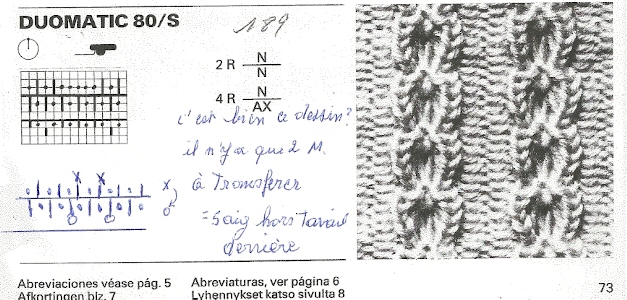 DUOMATIC 80/S
189
2 R N
N
4 R N
AX
c'est bien ce dessin?
il n'y a que 2 M.
à Transférer
= 5 aig hors Travail
derrière
Abreviaciones véase pág. 5
Abreviaturas, ver página 6
Afkortingen blz. 7
Lyhennykset katso sivulta 8
73